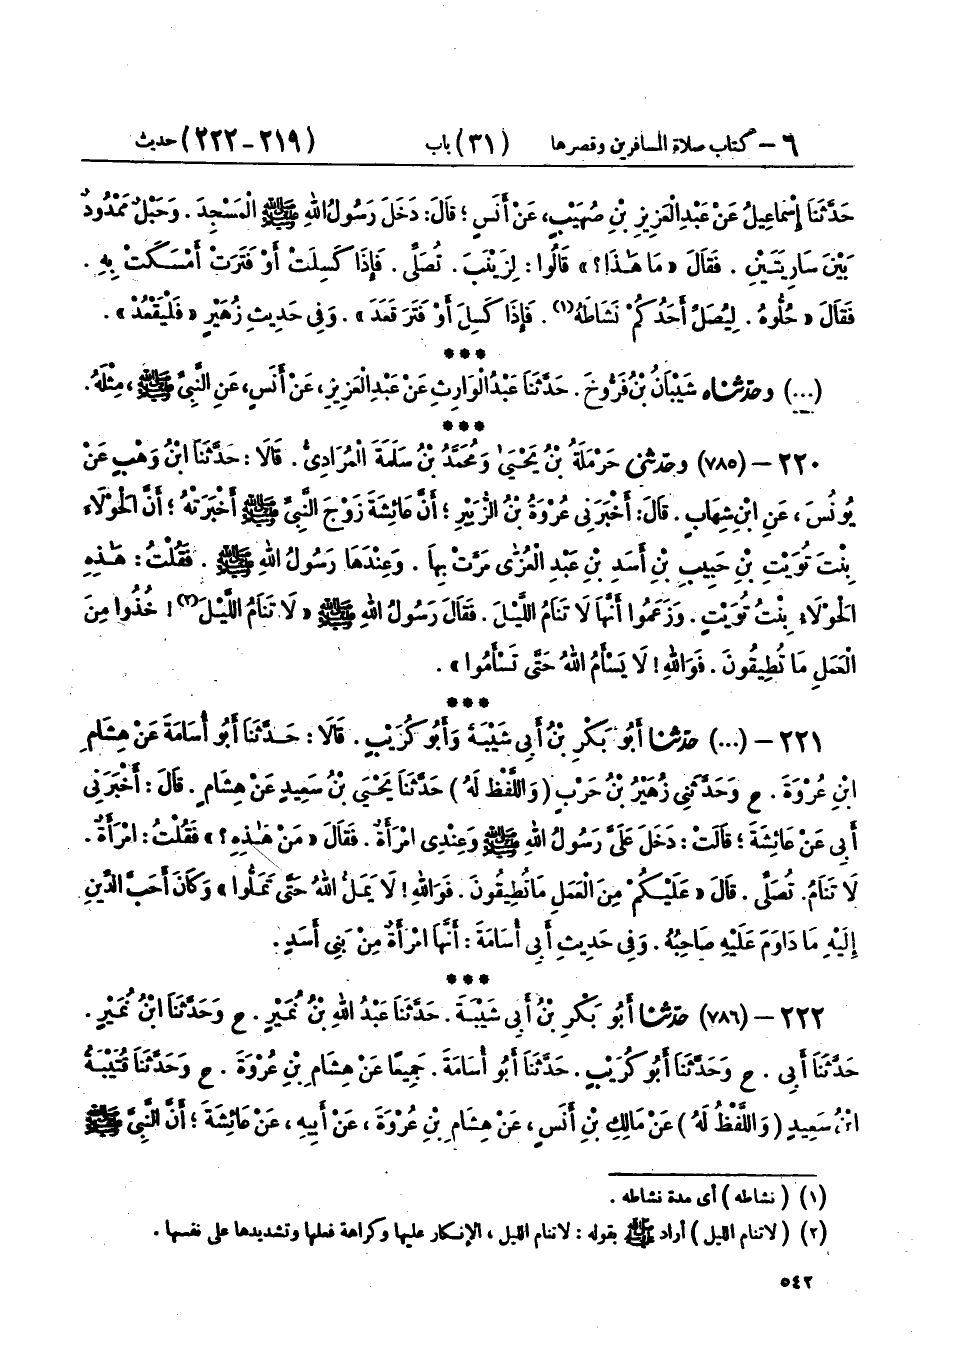 ٦ – كتاب صلاة المسافرين وقصرها (٣١) باب (٢١٩-٢٢٢) حديث
حَدَّثَنَا إِسْمَاعِيلُ عَنْ عَبْدِ الْعَزِيزِ بْنِ صُهَيْبٍ، عَنْ أَنَسٍ؛ قَالَ: دَخَلَ رَسُولُ اللهِ ﷺ الْمَسْجِدَ. وَحَبْلٌ مَمْدُودٌ
بَيْنَ سَارِيَتَيْنِ. فَقَالَ « مَا هَٰذَا؟ » قَالُوا: لِزَيْنَبَ. تُصَلِّى. فَإِذَا كَسِلَتْ أَوْ فَتَرَتْ أَمْسَكَتْ بِهِ.
فَقَالَ « حُلُّوهُ. لِيُصَلِّ أَحَدُكُمْ نَشَاطَهُ(١). فَإِذَا كَسِلَ أَوْ فَتَرَ قَعَدَ ». وَفِى حَدِيثِ زُهَيْرٍ « فَلْيَقْعُدْ ».
***
(...) وحدثناه شَيْبَانُ بْنُ فَرُّوخَ. حَدَّثَنَا عَبْدُ الْوَارِثِ عَنْ عَبْدِ الْعَزِيزِ، عَنْ أَنَسٍ، عَنِ النَّبِىِّ ﷺ، مِثْلَهُ.
***
٢٢٠ – (٧٨٥) وحدثنى حَرْمَلَةُ بْنُ يَحْيَىٰ وَمُحَمَّدُ بْنُ سَلَمَةَ الْمُرَادِىُّ. قَالَا: حَدَّثَنَا ابْنُ وَهْبٍ عَنْ
يُونُسَ، عَنِ ابْنِ شِهَابٍ. قَالَ: أَخْبَرَنِى عُرْوَةُ بْنُ الزُّبَيْرِ؛ أَنَّ عَائِشَةَ زَوْجَ النَّبِىِّ ﷺ أَخْبَرَتْهُ؛ أَنَّ الْحَوْلَاءَ
بِنْتَ تُوَيْتِ بْنِ حَبِيبِ بْنِ أَسَدِ بْنِ عَبْدِ الْعُزَّىٰ مَرَّتْ بِهَا. وَعِنْدَهَا رَسُولُ اللهِ ﷺ. فَقُلْتُ: هَٰذِهِ
الْحَوْلَاءُ بِنْتُ تُوَيْتٍ. وَزَعَمُوا أَنَّهَا لَا تَنَامُ اللَّيْلَ. فَقَالَ رَسُولُ اللهِ ﷺ « لَا تَنَامُ اللَّيْلَ(٢)! خُذُوا مِنَ
الْعَمَلِ مَا تُطِيقُونَ. فَوَاللهِ! لَا يَسْأَمُ اللهُ حَتَّى تَسْأَمُوا ».
***
٢٢١ – (...) حدثنا أَبُو بَكْرِ بْنُ أَبِى شَيْبَةَ وَأَبُو كُرَيْبٍ. قَالَا: حَدَّثَنَا أَبُو أُسَامَةَ عَنْ هِشَامِ
ابْنِ عُرْوَةَ. ح وَحَدَّثَنِى زُهَيْرُ بْنُ حَرْبٍ (وَاللَّفْظُ لَهُ) حَدَّثَنَا يَحْيَىٰ بْنُ سَعِيدٍ عَنْ هِشَامٍ. قَالَ: أَخْبَرَنِى
أَبِى عَنْ عَائِشَةَ؛ قَالَتْ: دَخَلَ عَلَىَّ رَسُولُ اللهِ ﷺ وَعِنْدِى امْرَأَةٌ. فَقَالَ « مَنْ هَٰذِهِ؟ » فَقُلْتُ: امْرَأَةٌ.
لَا تَنَامُ. تُصَلِّى. قَالَ « عَلَيْكُمْ مِنَ الْعَمَلِ مَا تُطِيقُونَ. فَوَاللهِ! لَا يَمَلُّ اللهُ حَتَّى تَمَلُّوا » وَكَانَ أَحَبَّ الدِّينِ
إِلَيْهِ مَا دَاوَمَ عَلَيْهِ صَاحِبُهُ. وَفِى حَدِيثِ أَبِى أُسَامَةَ: أَنَّهَا امْرَأَةٌ مِنْ بَنِى أَسَدٍ.
***
٢٢٢ – (٧٨٦) حدثنا أَبُو بَكْرِ بْنُ أَبِى شَيْبَةَ. حَدَّثَنَا عَبْدُ اللهِ بْنُ نُمَيْرٍ. ح وَحَدَّثَنَا ابْنُ نُمَيْرٍ.
حَدَّثَنَا أَبِى. ح وَحَدَّثَنَا أَبُو كُرَيْبٍ. حَدَّثَنَا أَبُو أُسَامَةَ. جَمِيعًا عَنْ هِشَامِ بْنِ عُرْوَةَ. ح وَحَدَّثَنَا قُتَيْبَةُ
ابْنُ سَعِيدٍ (وَاللَّفْظُ لَهُ) عَنْ مَالِكِ بْنِ أَنَسٍ، عَنْ هِشَامِ بْنِ عُرْوَةَ، عَنْ أَبِيهِ، عَنْ عَائِشَةَ؛ أَنَّ النَّبِىَّ ﷺ
(١) (نشاطه) أى مدة نشاطه.
(٢) (لا تنام الليل) أراد ﷺ بقوله: لا تنام الليل، الإنكار عليها وكراهة فعلها وتشديدها على نفسها.
٥٤٢